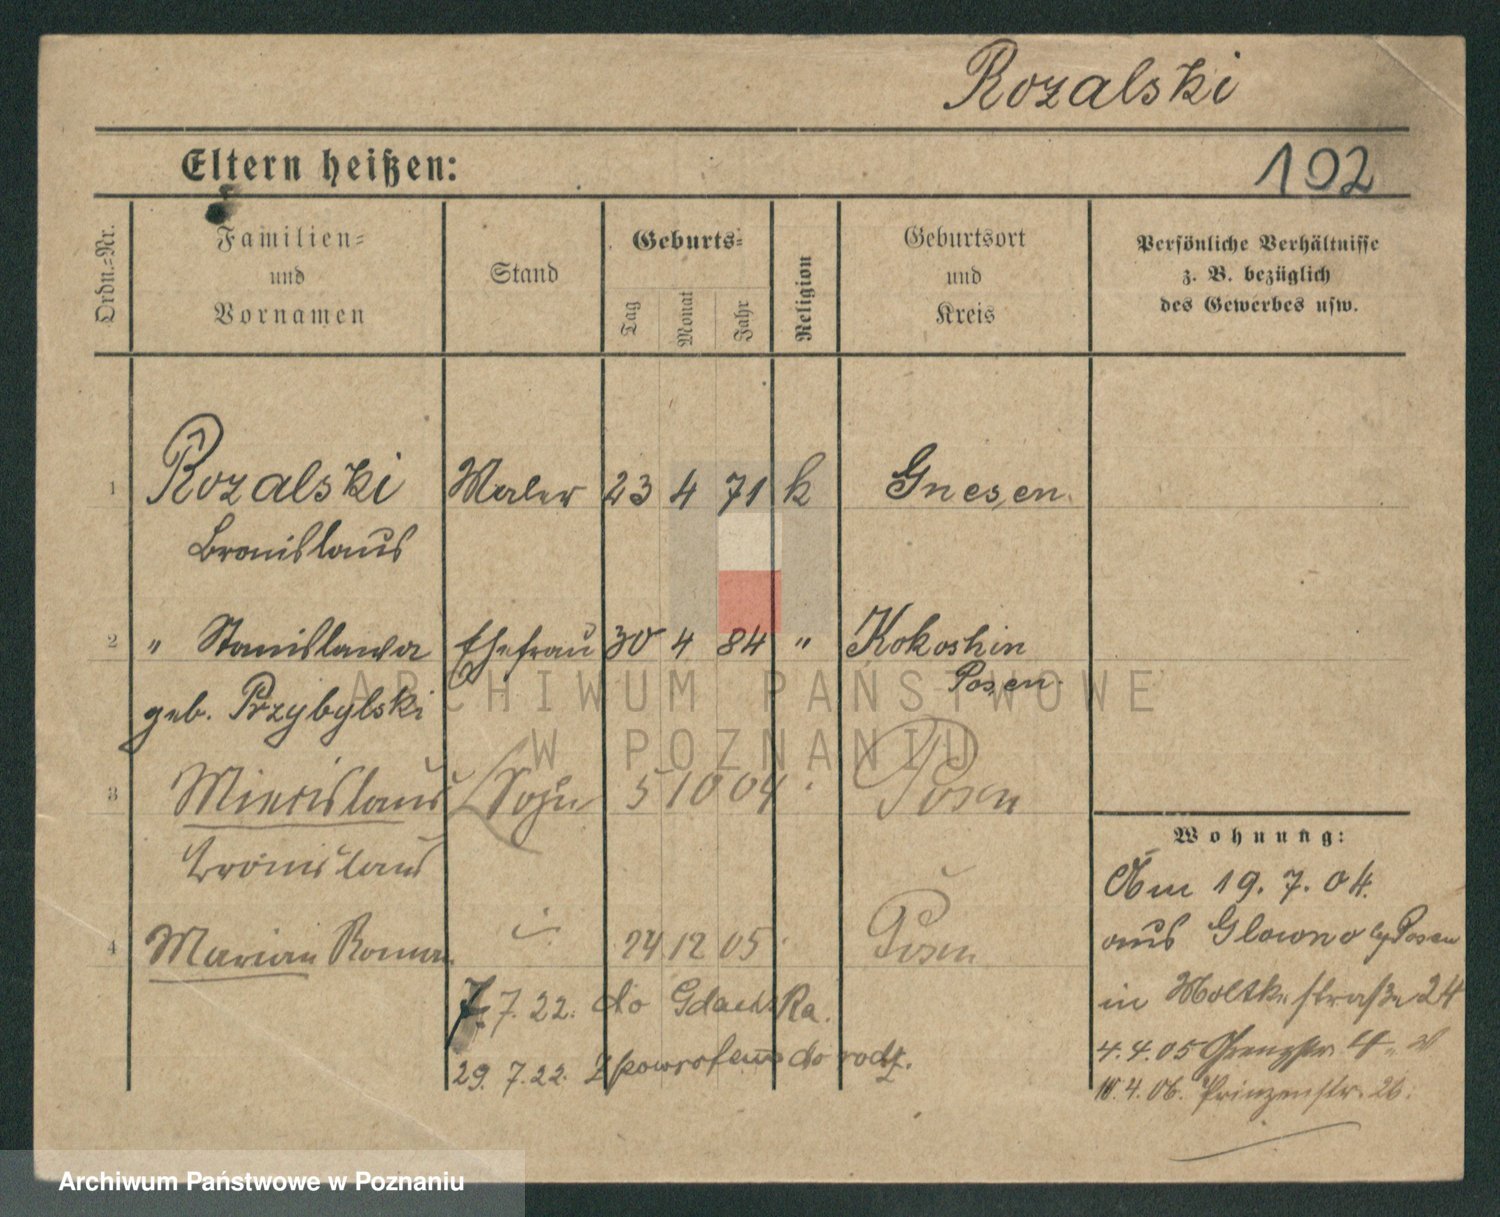 Rozalski
Eltern heißen:
102
Ordn.-Nr.
Familien-
und
Vornamen
Stand
Geburts-
Tag
Monat
Jahr
Religion
Geburtsort
und
Kreis
Persönliche Verhältnisse
z. B. bezüglich
des Gewerbes usw.
1 Rozalski Maler 23 4 71 k Gnesen.
Bronislaus
2 " Stanislawa Ehefrau 30 4 84 " Kokoshin
Posen.
geb. Przybylski
3 Miecislaus Sohn 5 10 04 Posen
Bronislaus
4 Marian Roman 24 12 05 Posen
7. 7. 22. do Gdańska.
29. 7. 22. Z powrotem do rodz.
Wohnung:
Am 19. 7. 04.
aus Glowno Posen
in Moltkestraße 24
4. 4. 05 Grenzstr. 4
10. 4. 06. Prinzenstr. 26.
ARCHIWUM PAŃSTWOWE
W POZNANIU
Archiwum Państwowe w Poznaniu